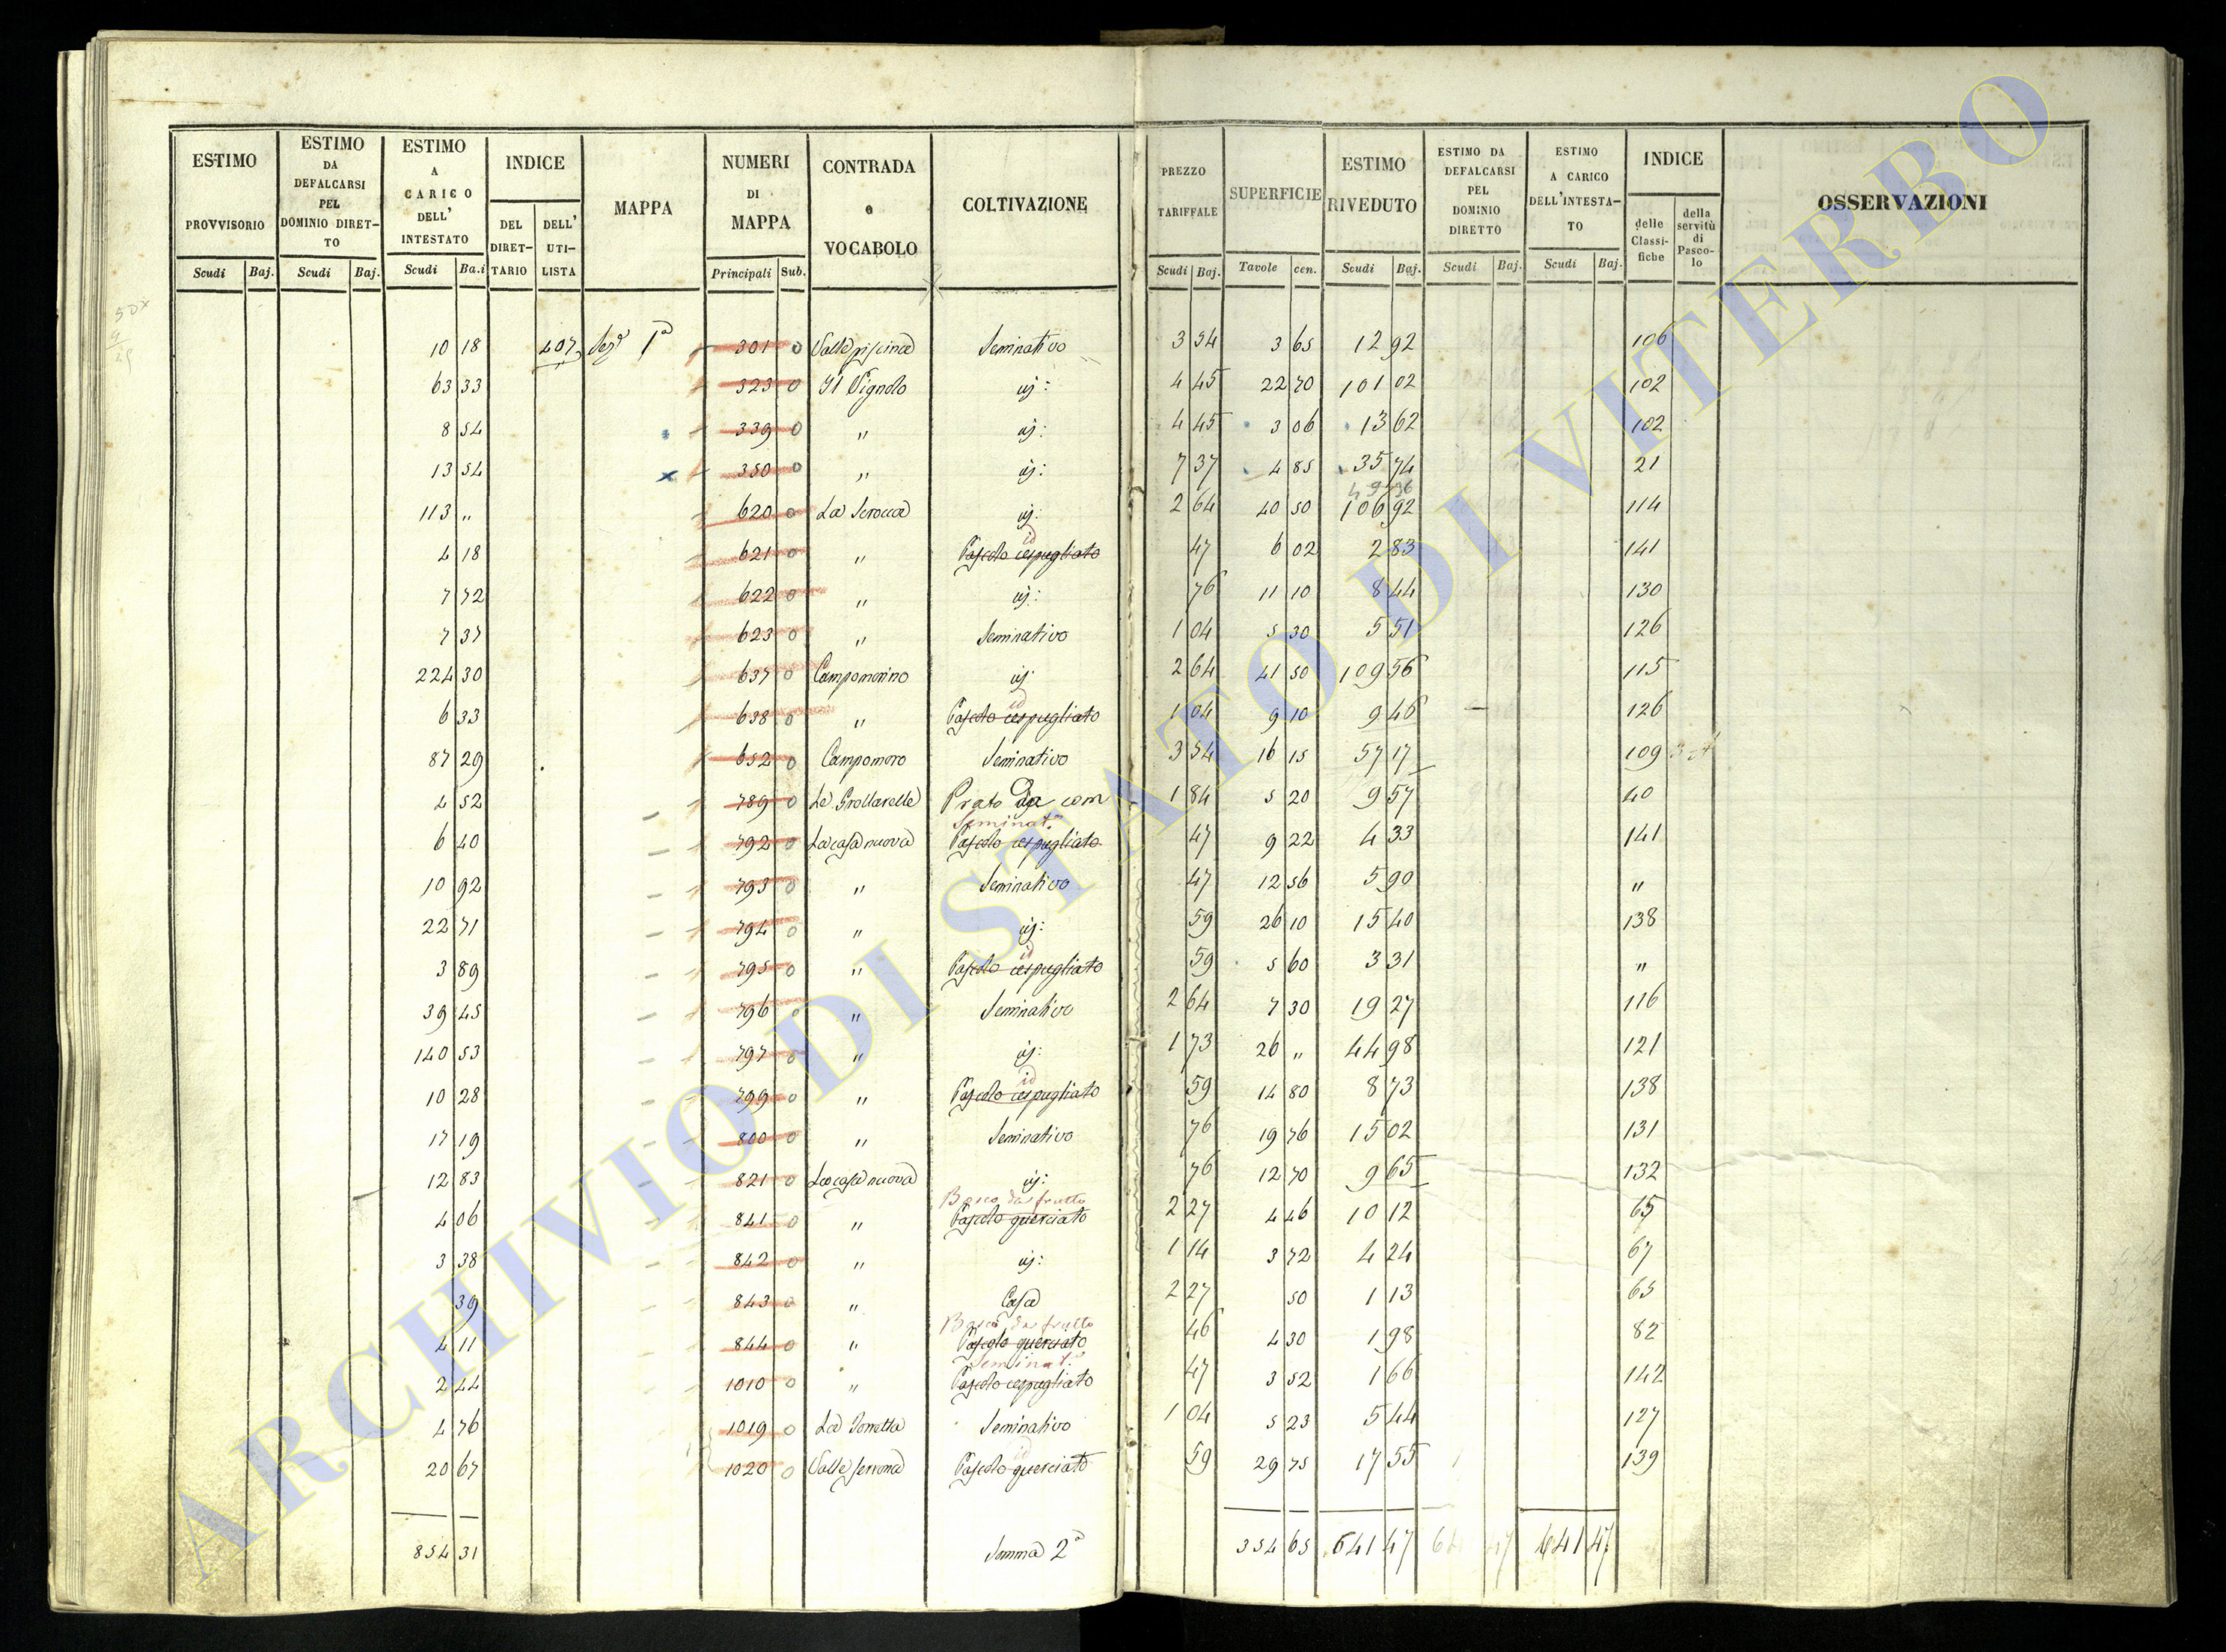 ESTIMO PROVVISORIO Scudi Baj. | ESTIMO DA DEFALCARSI PEL DOMINIO DIRETTO Scudi Baj. | ESTIMO A CARICO DELL' INTESTATO Scudi Ba.i | INDICE DEL DIRETTARIO DELL' UTILISTA | MAPPA | NUMERI DI MAPPA Principali Sub. | CONTRADA e VOCABOLO | COLTIVAZIONE | PREZZO TARIFFALE Scudi Baj. | SUPERFICIE Tavole cen. | ESTIMO RIVEDUTO Scudi Baj. | ESTIMO DA DEFALCARSI PEL DOMINIO DIRETTO Scudi Baj. | ESTIMO A CARICO DELL'INTESTATO Scudi Baj. | INDICE delle Classifiche della servitù di Pascolo | OSSERVAZIONI
10 18 407 Sez.e 1a 301 0 Valle piscina Seminativo 3 54 3 65 12 92 106
63 33 323 0 Il Vignolo id: 4 45 22 70 101 02 102
8 54 339 0 " id: 4 45 3 06 13 62 102
13 54 350 0 " id: 7 37 4 85 35 74 21
49 36
113 " 620 0 La Scrocca id: 2 64 40 50 106 92 114
id
4 18 621 0 " Pascolo cespugliato 47 6 02 2 83 141
7 72 622 0 " id: 76 11 10 8 44 130
7 37 623 0 " Seminativo 1 04 5 30 5 51 126
224 30 637 0 Campomorino id: 2 64 41 50 109 56 115
id
6 33 638 0 " Pascolo cespugliato 1 04 9 10 9 46 126
87 29 652 0 Campomoro Seminativo 3 54 16 15 57 17 109
4 52 789 0 Le Grottarelle Prato Da com 1 84 5 20 9 57 40
Seminat.o
6 40 792 0 La casa nuova Pascolo cespugliato 47 9 22 4 33 141
10 92 793 0 " Seminativo 47 12 56 5 90 "
22 71 794 0 " id: 59 26 10 15 40 138
id
3 89 795 0 " Pascolo cespugliato 59 5 60 3 31 "
39 45 796 0 " Seminativo 2 64 7 30 19 27 116
140 53 797 0 " id: 1 73 26 " 44 98 121
id
10 28 799 0 " Pascolo cespugliato 59 14 80 8 73 138
17 19 800 0 " Seminativo 76 19 76 15 02 131
12 83 821 0 La casa nuova id: 76 12 70 9 65 132
Bosco da frutto
4 06 841 0 " Pascolo querciato 2 27 4 46 10 12 65
3 38 842 0 " id: 1 14 3 72 4 24 67
39 843 0 " Casa 2 27 50 1 13 65
Bosco da frutto
4 11 844 0 " Pascolo querciato 46 4 30 1 98 82
Seminat.o
2 44 1010 0 " Pascolo cespugliato 47 3 52 1 66 142
4 76 1019 0 La Torretta Seminativo 1 04 5 23 5 44 127
id
20 67 1020 0 Valle Pascolo querciato 59 29 75 17 55 139
854 31 Somma 2a 354 65 641 47 641 47
ARCHIVIO DI STATO DI VITERBO